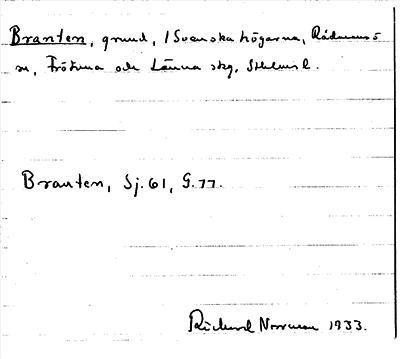 Branten, grund, i Svenska högarna, Rådmansö
sn, Frötuna och Länna skg, Sthlms l.
Branten, Sj. 61, G. 77.
Rickard Norrman 1933.